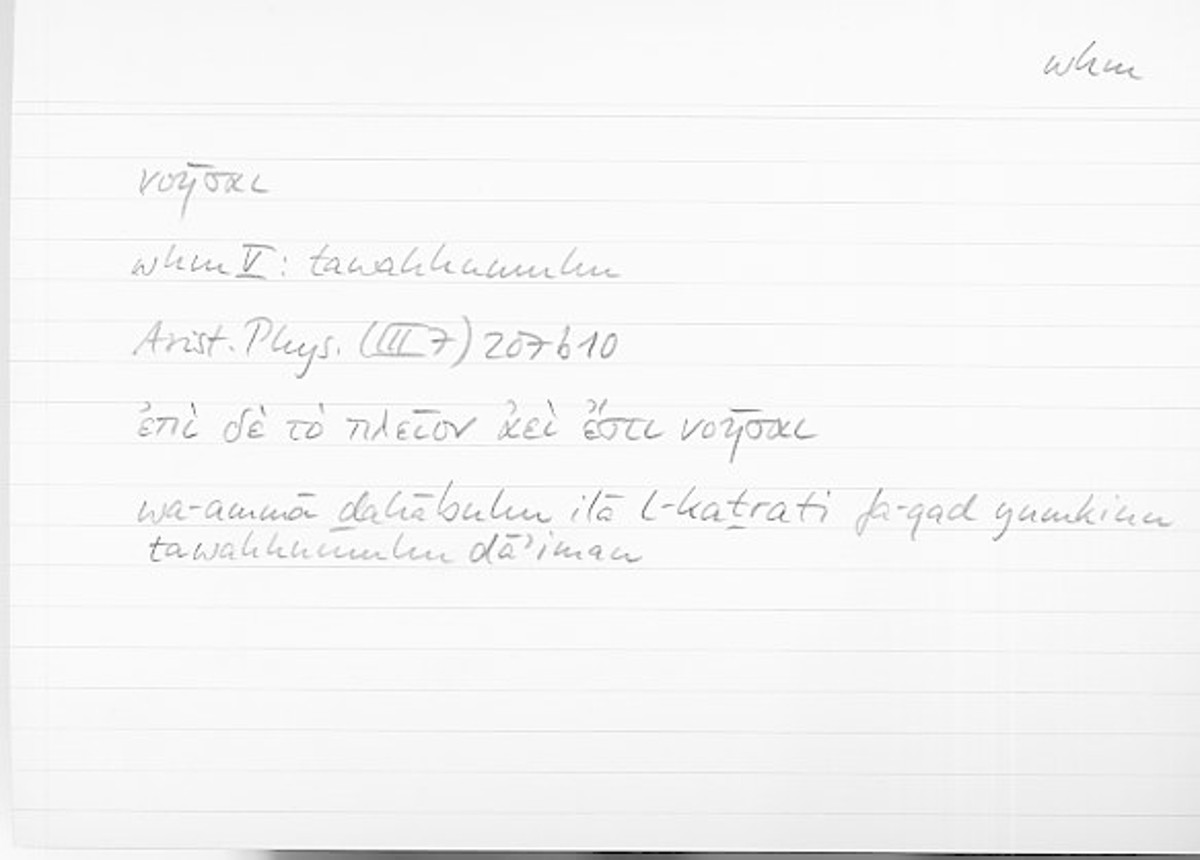 whm
νοῆσαι
whm V: tawahhumuhu
Arist. Phys. (III 7) 207b10
ἐπὶ δὲ τὸ πλεῖον ἀεὶ ἔστι νοῆσαι
wa-ammā ḏahābuhu ilā l-kaṯrati fa-qad yumkinu
tawahhumuhu dāʾiman